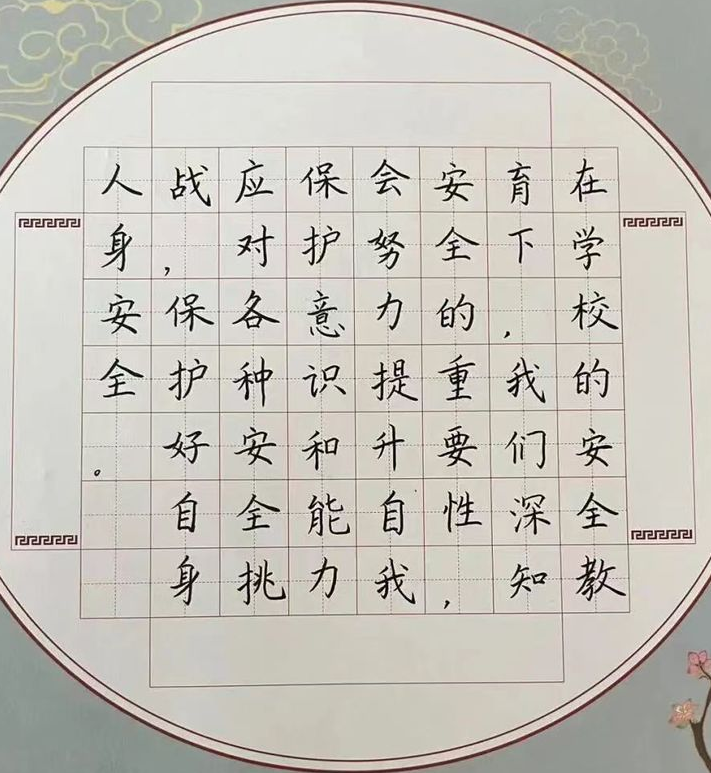 在学校的安全教
育下，我们深知
安全的重要性，
会努力提升自我
保护意识和能力
应对各种安全挑
战，保护好自身
人身安全。